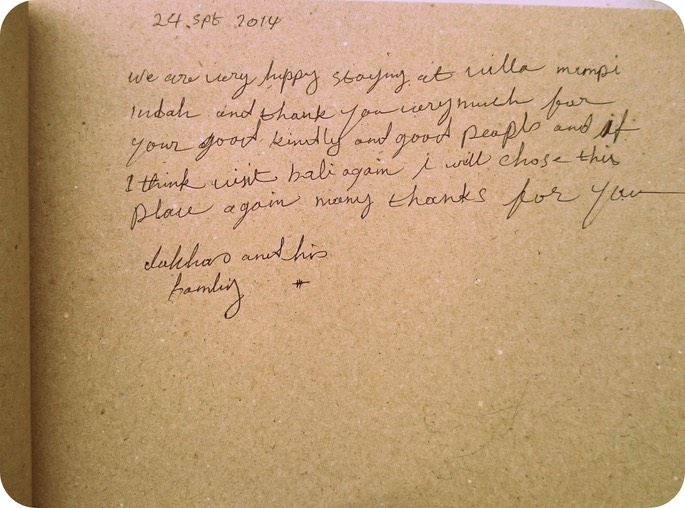 24 Spt 2014
we are very happy staying at villa mimpi
indah and thank you very much for
your good kindly and good peapls and if
I think visit bali again i will chose this
place again many thanks for you
and his
family